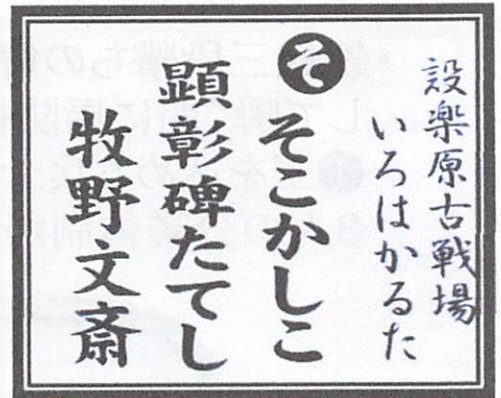 設楽原古戦場
いろはかるた
そ そこかしこ
顕彰碑たてし
牧野文斎